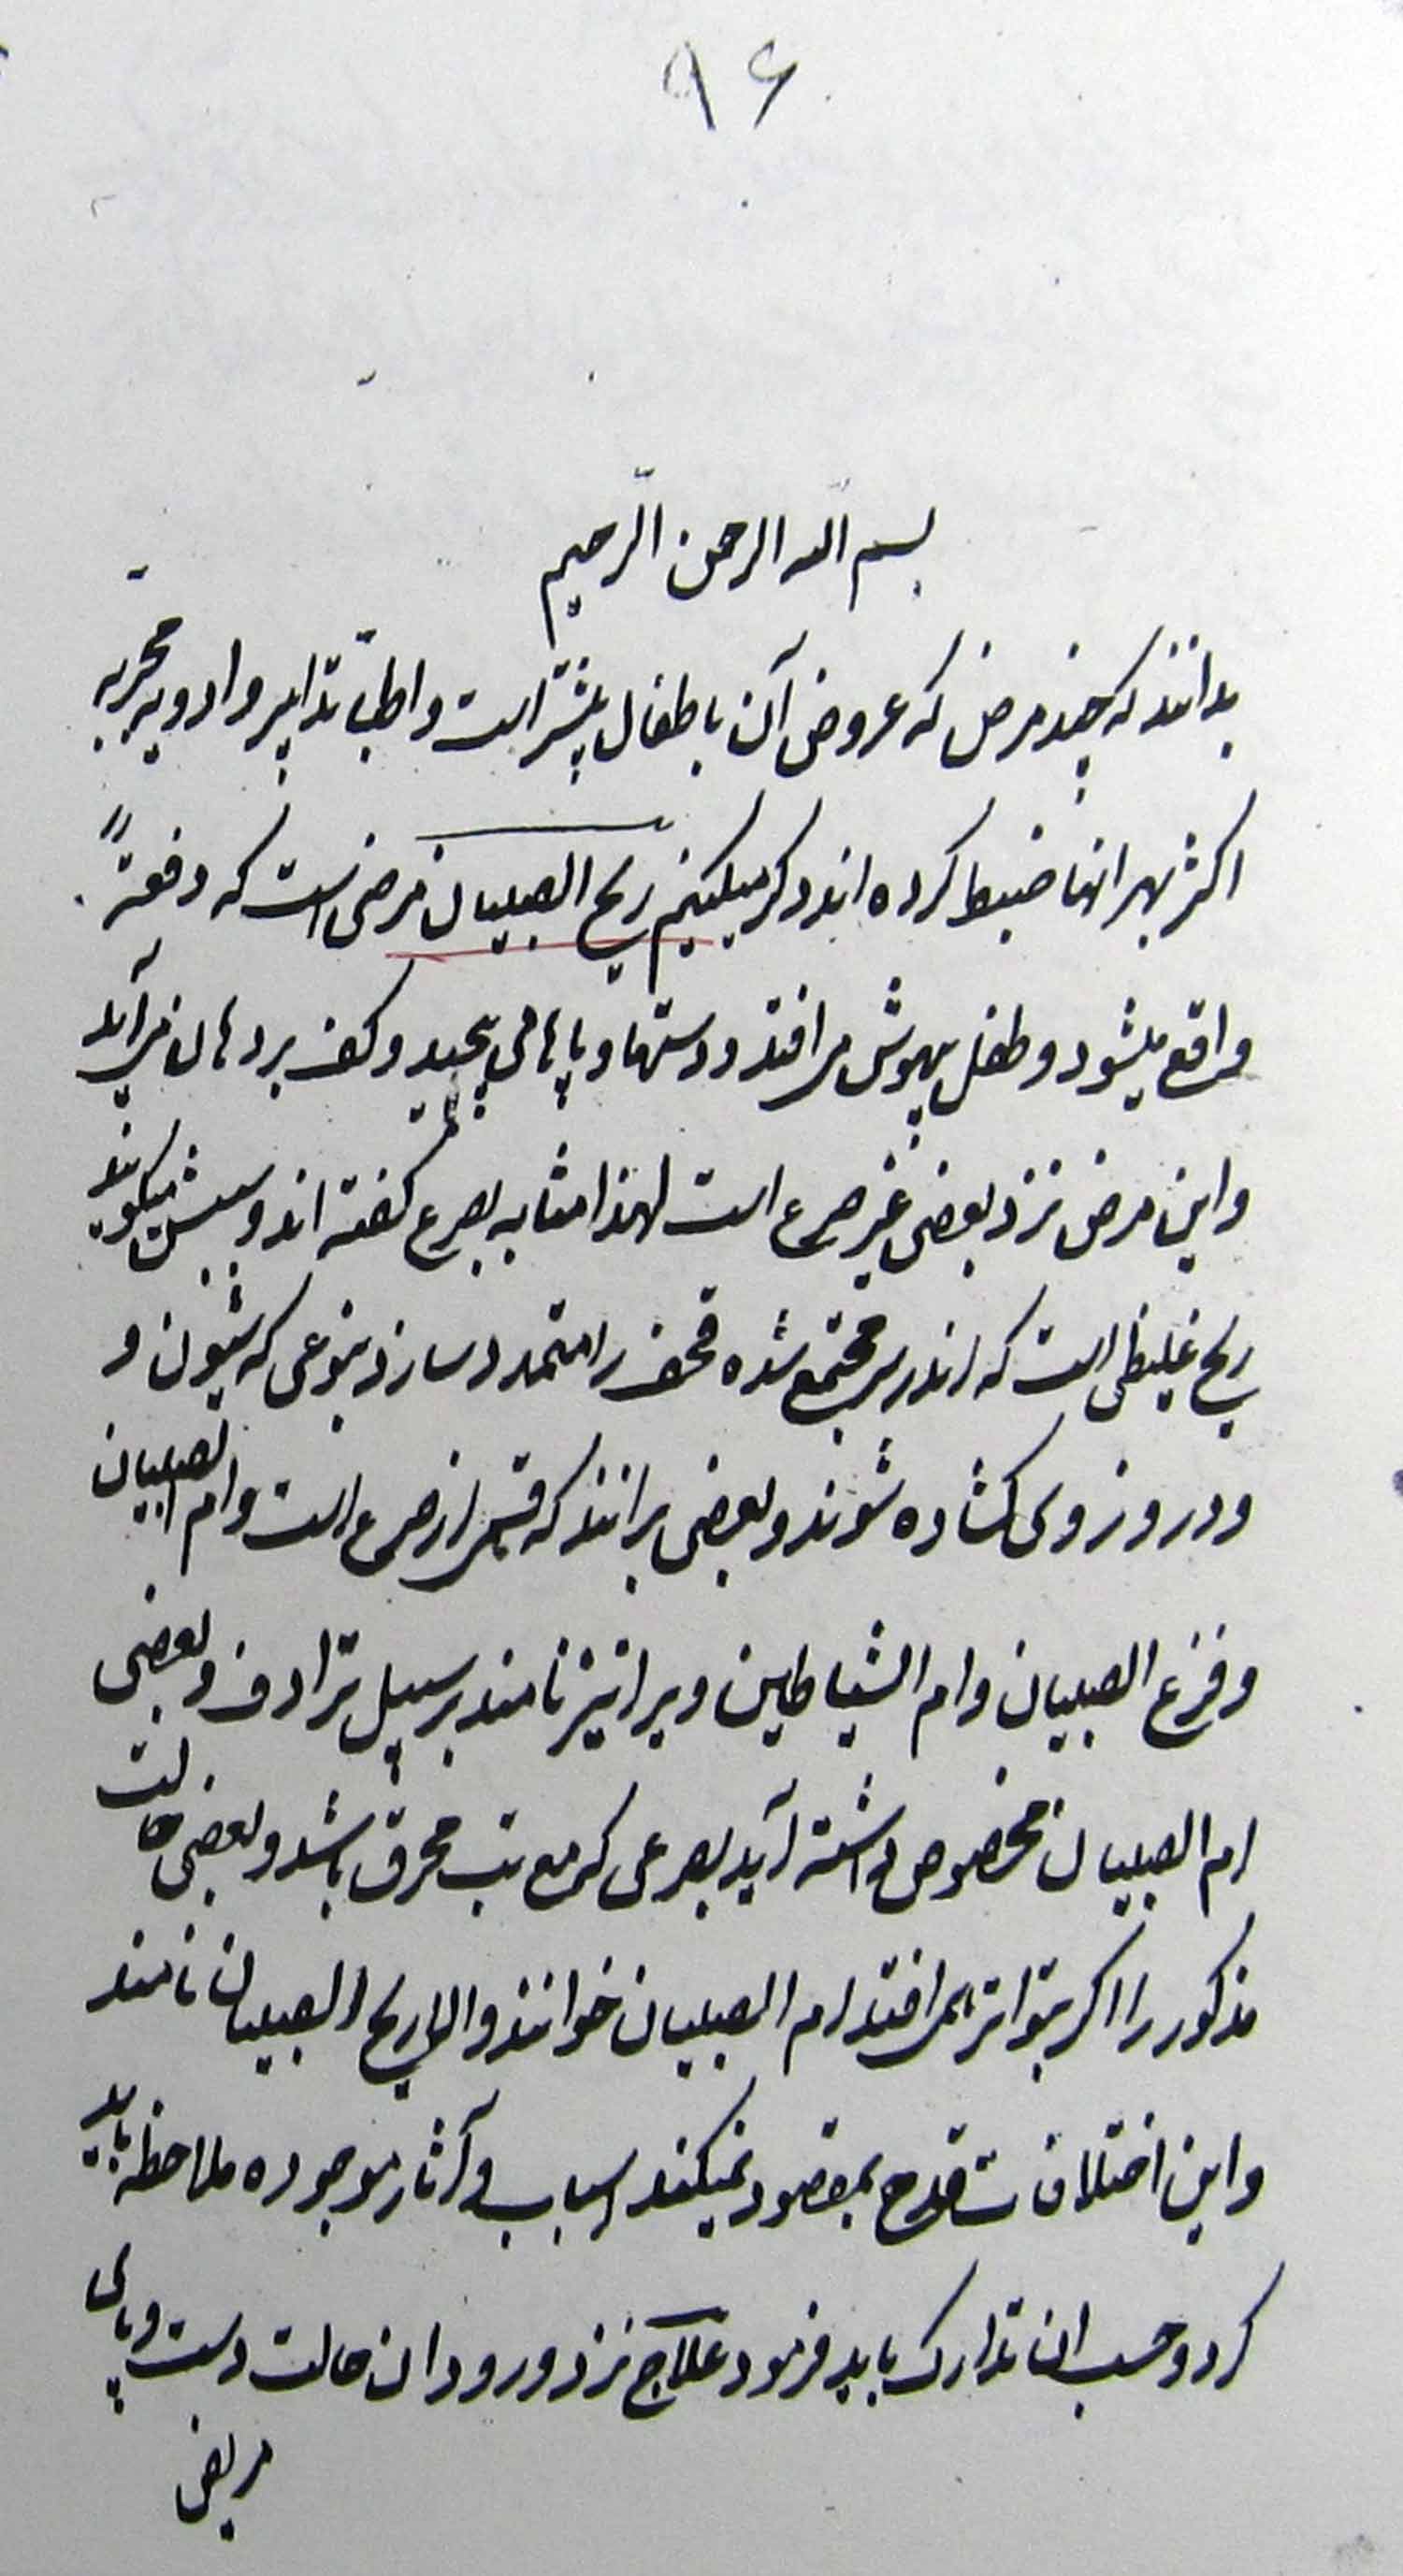 ۹۶
بسم الله الرحمن الرحیم
بدانند که چند مرض که عروض آن باطفال بیشتر است و اطبا تدابیر و ادویه مجربه
اکثر بهر انها ضبط کرده اند ذکر میکنیم ریح الصبیان مرضی است که دفعةً
واقع میشود و طفل بیهوش می افتد و دستها و پاها می پیچد و کف بر دهان می آید
و این مرض نزد بعضی غیر صرع است لهذا مشابه بصرع گفته اند و سببش میگویند
ریح غلیظی است که اندر سر مجتمع شده قحف را متمدد سازد بنوعی که شئون و
و دروز وی گشاده شوند و بعضی برانند که قسمی از صرع است و ام الصبیان
و فزع الصبیان و ام الشیاطین ویرا نیز نامند بر سبیل ترادف و بعضی
ام الصبیان مخصوص داشته آید بصرعی که مع تب محرق باشد و بعضی حالت
مذکور را اگر بتواتر می افتد ام الصبیان خوانند و الا ریح الصبیان نامند
و این اختلافات قدح بمقصود نمیکند اسباب و آثار موجوده ملاحظه باید
کرد و حسب ان تدارک باید فرمود علاج نزد ورود ان حالت دست و پای
مریض